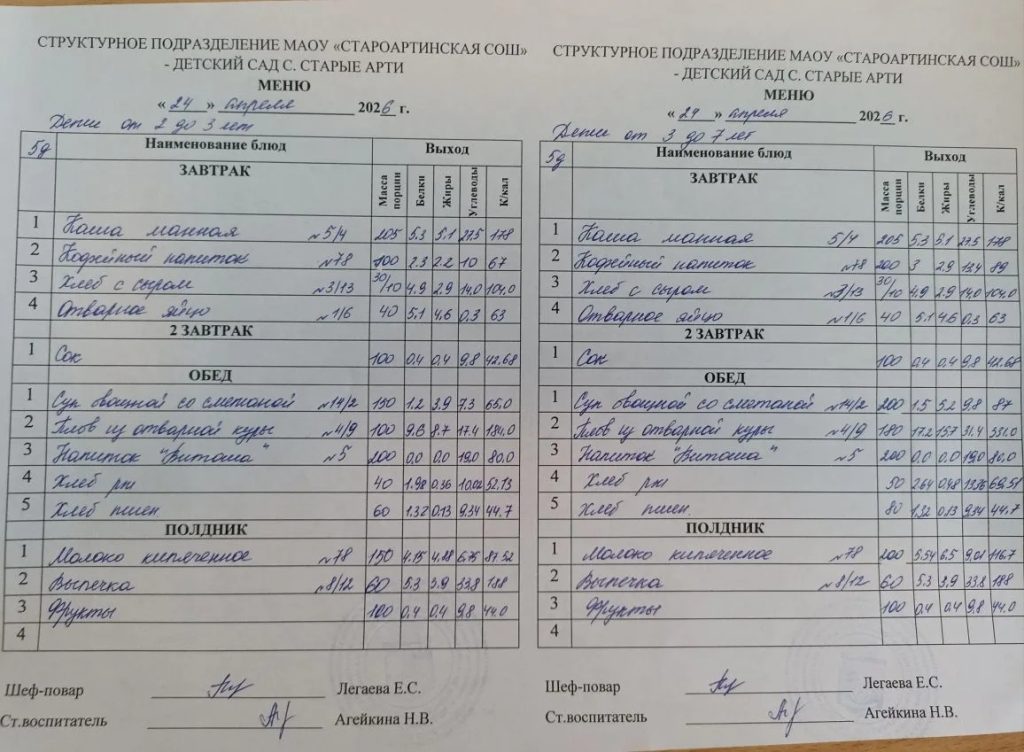 СТРУКТУРНОЕ ПОДРАЗДЕЛЕНИЕ МАОУ «СТАРОАРТИНСКАЯ СОШ»
- ДЕТСКИЙ САД С. СТАРЫЕ АРТИ
МЕНЮ
« 24 » апреля 2026 г.
Дети от 2 до 3 лет
5д Наименование блюд Выход
ЗАВТРАК Масса порции Белки Жиры Углеводы К/кал
1 Каша манная №5/4 205 5.3 5.1 27.5 178
2 Кофейный напиток №78 100 2.3 2.2 10 67
3 Хлеб с сыром №3/13 30/10 4.9 2.9 14,0 104,0
4 Отварное яйцо №1/6 40 5.1 4.6 0.3 63
2 ЗАВТРАК
1 Сок 100 0.4 0.4 9.8 42.68
ОБЕД
1 Суп овощной со сметаной №14/2 150 1.2 3.9 7.3 65.0
2 Плов из отварной куры №4/9 100 9.6 8.7 17.4 184.0
3 Напиток "Витоша" №5 200 0.0 0.0 19.0 80,0
4 Хлеб рж 40 1.98 0.36 10.02 52.13
5 Хлеб пшен. 60 1.32 0.13 9.34 44.7
ПОЛДНИК
1 Молоко кипяченное №78 150 4.15 4.28 6.75 87.52
2 Выпечка №8/12 60 5.3 3.9 33.8 188
3 Фрукты 100 0.4 0.4 9.8 44.0
4
Шеф-повар Легаева Е.С.
Ст.воспитатель Агейкина Н.В.
СТРУКТУРНОЕ ПОДРАЗДЕЛЕНИЕ МАОУ «СТАРОАРТИНСКАЯ СОШ»
- ДЕТСКИЙ САД С. СТАРЫЕ АРТИ
МЕНЮ
« 24 » апреля 2026 г.
Дети от 3 до 7 лет
5д Наименование блюд Выход
ЗАВТРАК Масса порции Белки Жиры Углеводы К/кал
1 Каша манная 5/4 205 5.3 5.1 27.5 178
2 Кофейный напиток №78 200 3 2.9 13.4 89
3 Хлеб с сыром №3/13 30/10 4.9 2.9 14,0 104,0
4 Отварное яйцо №1/6 40 5.1 4.6 0.3 63
2 ЗАВТРАК
1 Сок 100 0.4 0.4 9.8 42.68
ОБЕД
1 Суп овощной со сметаной №14/2 200 1.5 5.2 9.8 87
2 Плов из отварной куры №4/9 180 17.2 15.7 31.4 331.0
3 Напиток "Витоша" №5 200 0.0 0.0 19.0 80,0
4 Хлеб рж 50 2.64 0.48 69.51
5 Хлеб пшен. 80 1.32 0.13 9.34 44.7
ПОЛДНИК
1 Молоко кипяченное №78 200 5.54 6.5 9.01 116.7
2 Выпечка №8/12 60 5.3 3.9 33.8 188
3 Фрукты 100 0.4 0.4 9.8 44.0
4
Шеф-повар Легаева Е.С.
Ст.воспитатель Агейкина Н.В.